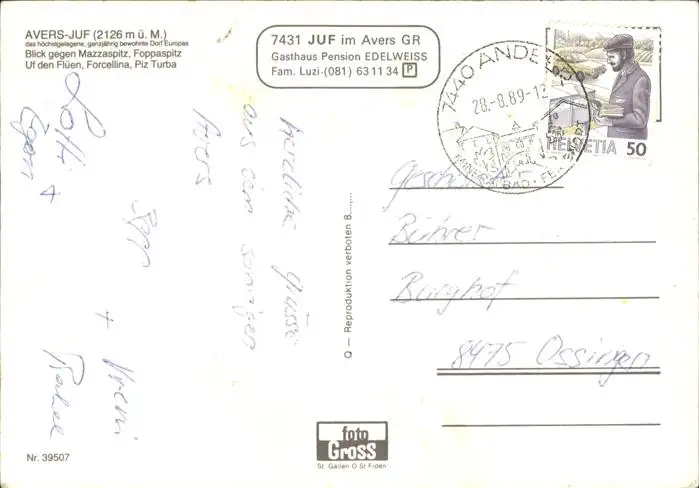 AVERS-JUF (2126 m ü. M.)
das höchstgelegene, ganzjährig bewohnte Dorf Europas
Blick gegen Mazzaspitz, Foppaspitz
Uf den Flüen, Forcellina, Piz Turba
7431 JUF im Avers GR
Gasthaus Pension EDELWEISS
Fam. Luzi·(081) 63 11 34 P
7440 ANDEER
28.-8.89-12
BAD·FE
HELVETIA 50
Herzliche Grüsse
aus dem sonnigen
Avers
Sepp + Vreni
Rahel
Lotti
+
Geschw.
Bührer
Burghof
8475 Ossingen
Q — Reproduktion verboten 8......
foto
Gross
St. Gallen O St Fiden
Nr. 39507